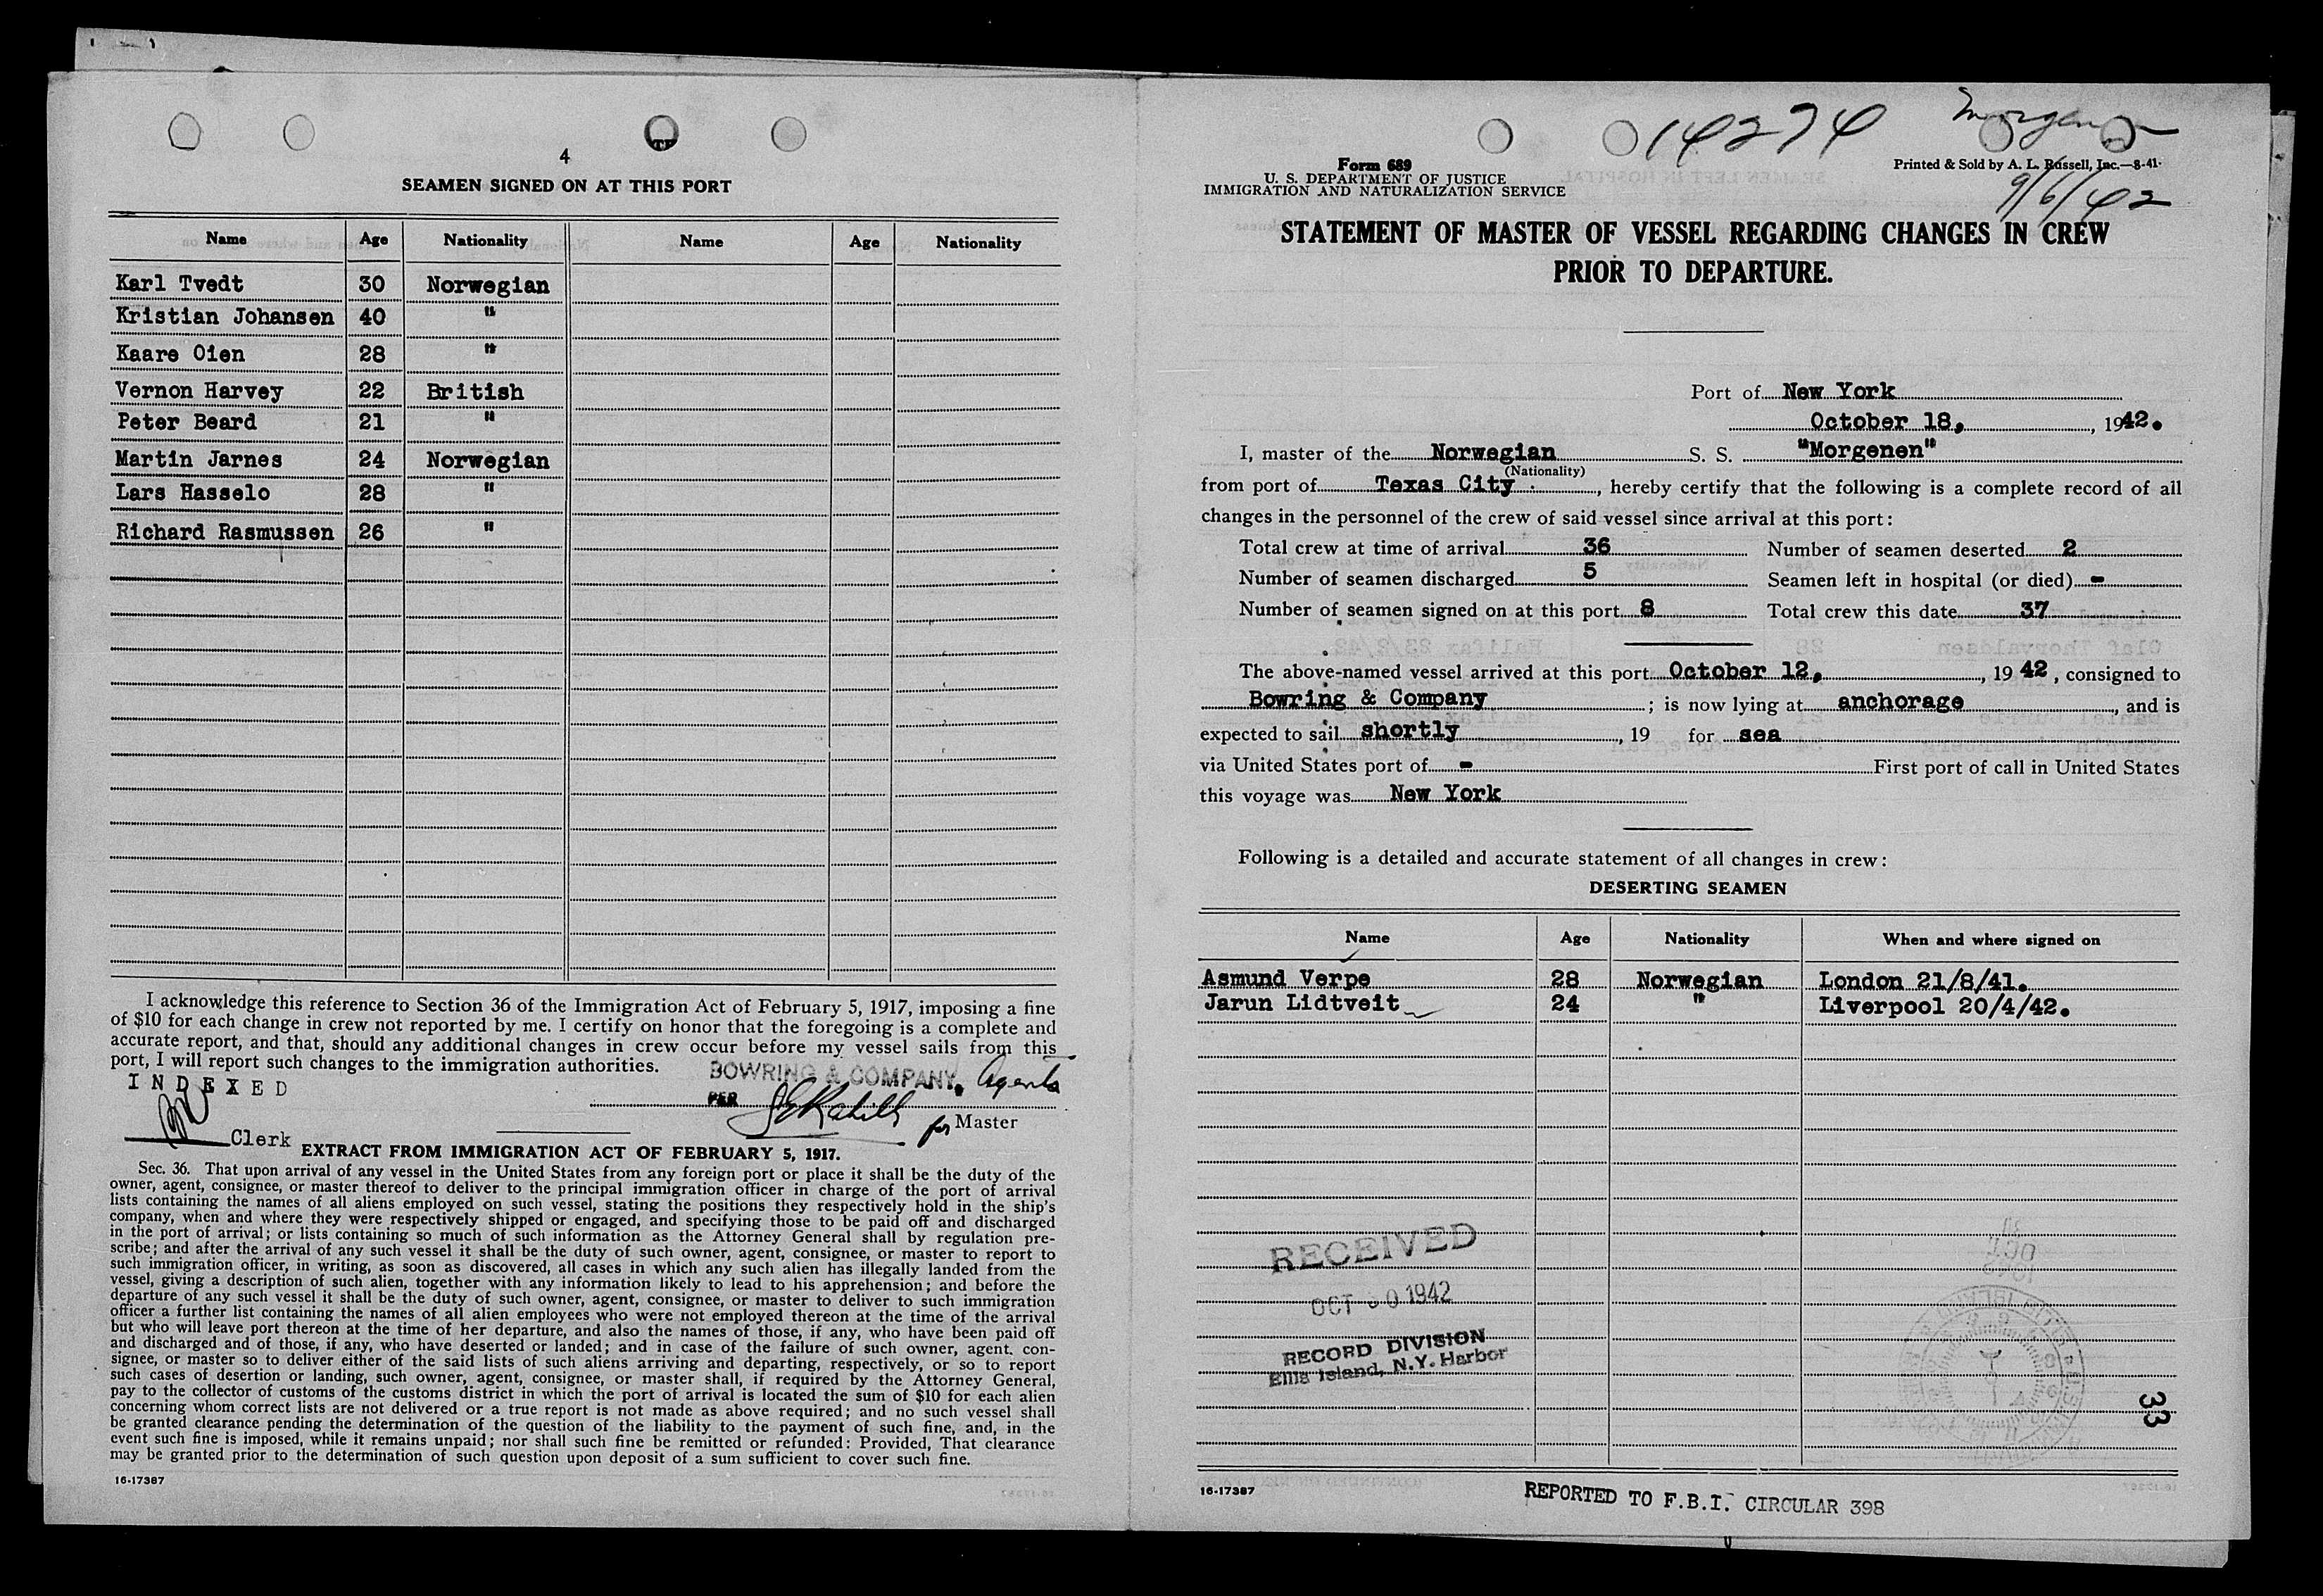 4
SEAMEN SIGNED ON AT THIS PORT
Name Age Nationality Name Age Nationality
Karl Tvedt 30 Norwegian
Kristian Johansen 40 "
Kaare Oien 28 "
Vernon Harvey 22 British
Peter Beard 21 "
Martin Jarnes 24 Norwegian
Lars Hasselo 28 "
Richard Rasmussen 26 "
I acknowledge this reference to Section 36 of the Immigration Act of February 5, 1917, imposing a fine
of $10 for each change in crew not reported by me. I certify on honor that the foregoing is a complete and
accurate report, and that, should any additional changes in crew occur before my vessel sails from this
port, I will report such changes to the immigration authorities.
BOWRING & COMPANY. Agents
INDEXED
PER
for Master
Clerk
EXTRACT FROM IMMIGRATION ACT OF FEBRUARY 5, 1917.
Sec. 36. That upon arrival of any vessel in the United States from any foreign port or place it shall be the duty of the
owner, agent, consignee, or master thereof to deliver to the principal immigration officer in charge of the port of arrival
lists containing the names of all aliens employed on such vessel, stating the positions they respectively hold in the ship's
company, when and where they were respectively shipped or engaged, and specifying those to be paid off and discharged
in the port of arrival; or lists containing so much of such information as the Attorney General shall by regulation pre-
scribe; and after the arrival of any such vessel it shall be the duty of such owner, agent, consignee, or master to report to
such immigration officer, in writing, as soon as discovered, all cases in which any such alien has illegally landed from the
vessel, giving a description of such alien, together with any information likely to lead to his apprehension; and before the
departure of any such vessel it shall be the duty of such owner, agent, consignee, or master to deliver to such immigration
officer a further list containing the names of all alien employees who were not employed thereon at the time of the arrival
but who will leave port thereon at the time of her departure, and also the names of those, if any, who have been paid off
and discharged and of those, if any, who have deserted or landed; and in case of the failure of such owner, agent. con-
signee, or master so to deliver either of the said lists of such aliens arriving and departing, respectively, or so to report
such cases of desertion or landing, such owner, agent, consignee, or master shall, if required by the Attorney General,
pay to the collector of customs of the customs district in which the port of arrival is located the sum of $10 for each alien
concerning whom correct lists are not delivered or a true report is not made as above required; and no such vessel shall
be granted clearance pending the determination of the question of the liability to the payment of such fine, and, in the
event such fine is imposed, while it remains unpaid; nor shall such fine be remitted or refunded: Provided, That clearance
may be granted prior to the determination of such question upon deposit of a sum sufficient to cover such fine.
16-17387
14274
Form 689
U. S. DEPARTMENT OF JUSTICE
IMMIGRATION AND NATURALIZATION SERVICE
Printed & Sold by A. L. Russell, Inc.—8-41·
9/6/42
STATEMENT OF MASTER OF VESSEL REGARDING CHANGES IN CREW
PRIOR TO DEPARTURE.
Port of New York
October 18, , 1942.
I, master of the Norwegian S. S. "Morgenen"
(Nationality)
from port of Texas City , hereby certify that the following is a complete record of all
changes in the personnel of the crew of said vessel since arrival at this port:
Total crew at time of arrival 36 Number of seamen deserted 2
Number of seamen discharged 5 Seamen left in hospital (or died) -
Number of seamen signed on at this port 8 Total crew this date 37
The above-named vessel arrived at this port October 12, , 19 42 , consigned to
Bowring & Company ; is now lying at anchorage , and is
expected to sail shortly , 19 for sea
via United States port of - First port of call in United States
this voyage was New York
Following is a detailed and accurate statement of all changes in crew:
DESERTING SEAMEN
Name Age Nationality When and where signed on
Asmund Verpe 28 Norwegian London 21/8/41.
Jarun Lidtveit 24 " Liverpool 20/4/42.
RECEIVED
OCT 0 1942
RECORD DIVISION
Ellis Island, N.Y. Harbor
33
16-17387
REPORTED TO F.B.I. CIRCULAR 398